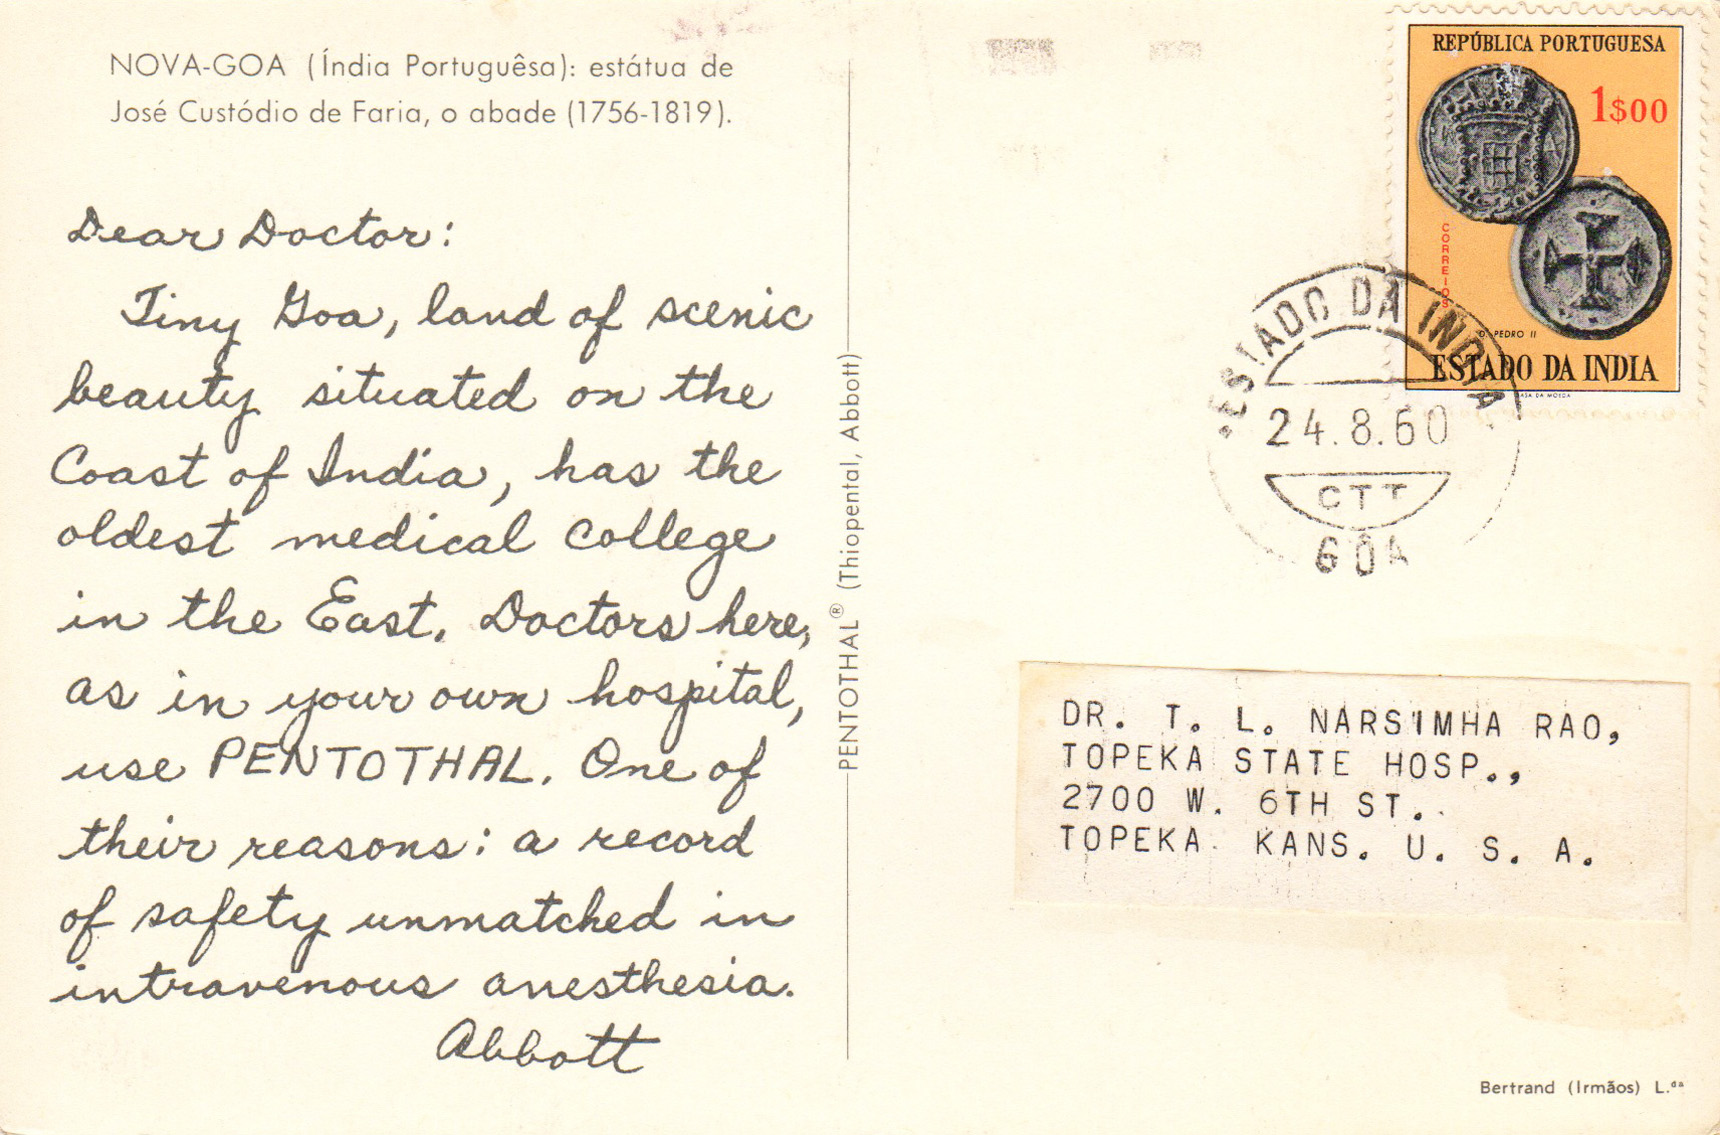 NOVA-GOA (Índia Portuguêsa): estátua de
José Custódio de Faria, o abade (1756-1819).
Dear Doctor:
Tiny Goa, land of scenic
beauty situated on the
Coast of India, has the
oldest medical college
in the East. Doctors here,
as in your own hospital,
use PENTOTHAL. One of
their reasons: a record
of safety unmatched in
intravenous anesthesia.
Abbott
PENTOTHAL® (Thiopental, Abbott)
REPÚBLICA PORTUGUESA
1$00
CORREIOS
D. PEDRO II
ESTADO DA INDIA
CASA DA MOEDA
ESTADO DA INDIA
24.8.60
CTT
GOA
DR. T. L. NARSIMHA RAO,
TOPEKA STATE HOSP.,
2700 W. 6TH ST.
TOPEKA KANS. U. S. A.
Bertrand (Irmãos) L.da